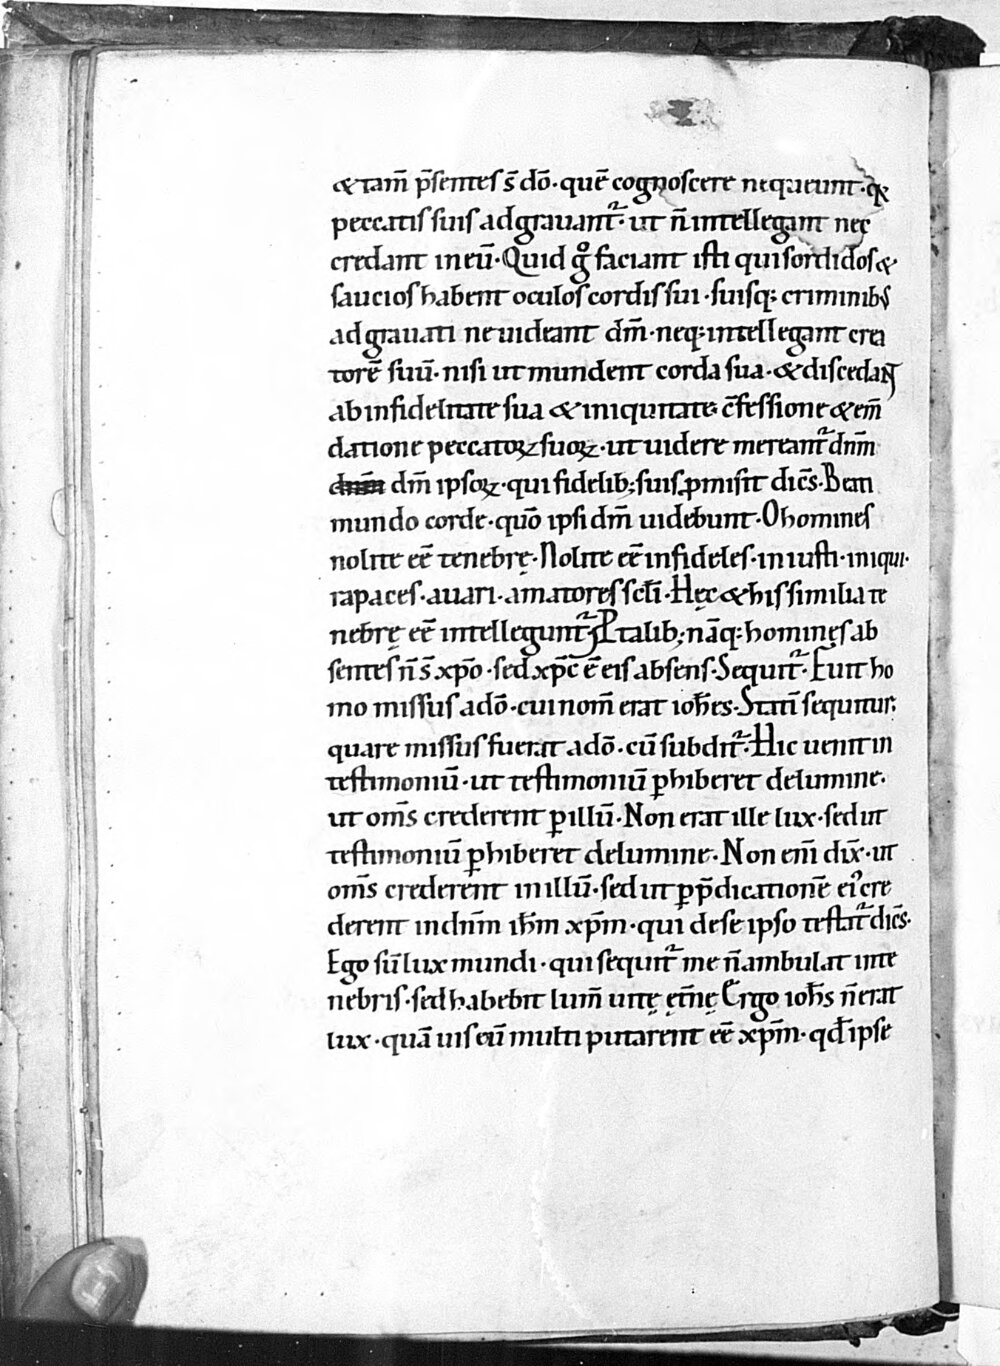 & tam̄ p̄sentes s̄ dō· quē cognoscere nequeunt· q̨
peccatis suis adgrauant᷑· ut n̄ intellegant nec
credant in eū· Quid gͦ faciant isti qui sordidos &
saucios habent oculos cordis sui· suisq; criminibꝰ
adgrauati ne uideant dm̄· neq; intellegant crea
torē suū· nisi ut mundent corda sua· & discedant
ab infidelitate sua & iniquitate· c̄fessione & em̄
datione peccatoꝝ suoꝝ· ut uidere mereant᷑ dnm̄
dnm̄ dm̄ ipsoꝝ· qui fidelib; suis ꝓmisit dic̄s· Beati
mundo corde· quō ipsi dm̄ uidebunt· O homines
nolite eē tenebrę· Nolite eē infideles· iniusti· iniqui·
rapaces· auari· amatores sc̄li· Hęc & his similia te
nebrę eē intellegunt᷑· Talib; nāq; hominęs ab
sentes n̄ s̄ xp̄o· sed xp̄c ē eis absens· Sequit᷑· Fuit ho
mo missus a dō· cui nom̄ erat ioh̄es· Statī sequitur;
quare missus fuerat a dō· cū subdit᷑· Hic uenit in
testimoniū· ut testimoniū ꝑhiberet de lumine·
ut om̄s crederent ꝑ illū· Non erat ille lux· sed ut
testimoniū ꝑhiberet de lumine· Non enī dix̄· ut
om̄s crederent in illū· sed ut ꝑ p̄dicationē ei᾽ cre
derent in dnm̄ ih̄m xp̄m· qui de se ipso testat᷑ dic̄s·
Ego sū lux mundi· qui sequit᷑ me n̄ ambulat in te
nebris· sed habebit lum̄ uitę ęt̄nę Ergo ioh̄s n̄ erat
lux· quāuis eū multi putarent eē xp̄m· qđ ipse